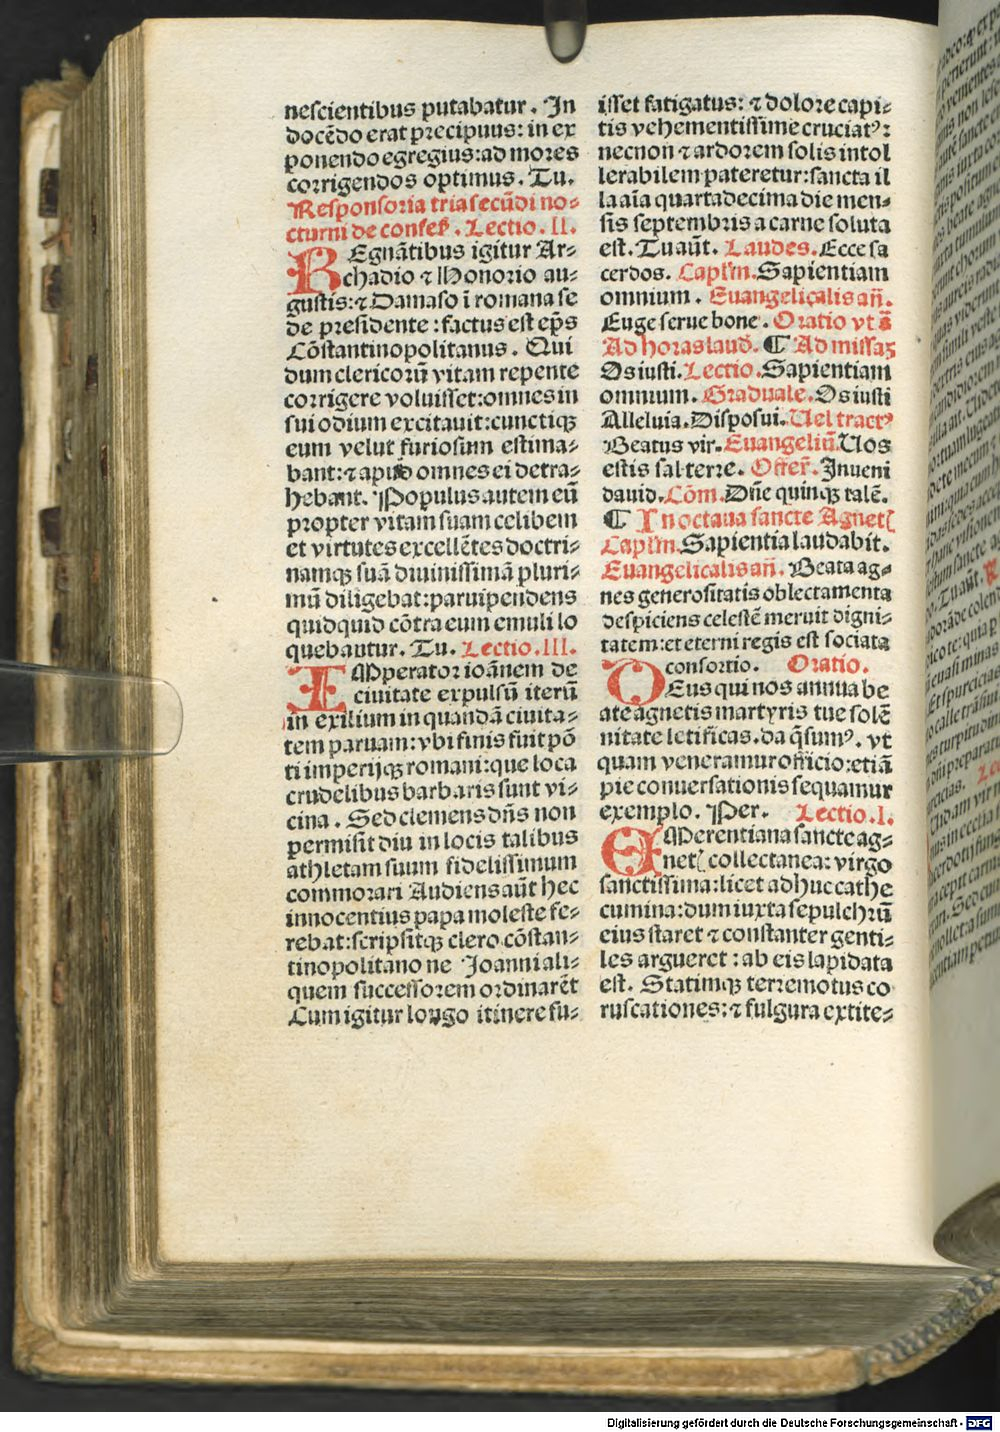 nescientibus putabatur. In
docēdo erat precipuus: in ex
ponendo egregius: ad mores
corrigendos optimus. Tu.
Responsoria tria secūdi no⸗
cturni de confes̄. Lectio. II.
REgnātibus igitur Ar⸗
chadio ⁊ Honorio au⸗
gustis: ⁊ Damaso ī romana se
de presidente: factus est ep̄s
Cōstantinopolitanus. Qui
dum clericorū vitam repente
corrigere voluisset: omnes in
sui odium excitauit: cunctiqꝫ
eum velut furiosum estima⸗
bant: ⁊ apud omnes ei detra⸗
hebant. Populus autem eū
propter vitam suam celibem
et virtutes excellētes doctri⸗
namqꝫ suā diuinissimā pluri⸗
mū diligebat: paruipendens
quidquid cōtra eum emuli lo
quebantur. Tu. Lectio. III.
IMperator ioānem de
ciuitate expulsū iterū
in exilium in quandā ciuita⸗
tem paruam: vbi finis fuit pō
ti imperijqꝫ romani: que loca
crudelibus barbaris sunt vi⸗
cina. Sed clemens dn̄s non
permisit diu in locis talibus
athletam suum fidelissimum
commorari Audiens aūt hec
innocentius papa moleste fe⸗
rebat: scripsitqꝫ clero cōstan⸗
tinopolitano ne Joanni ali⸗
quem successorem ordinarēt
Cum igitur longo itinere fu⸗
isset fatigatus: ⁊ dolore capi⸗
tis vehementissime cruciatꝰ:
necnon ⁊ ardorem solis intol
lerabilem pateretur: sancta il
la aīa quartadecima die men⸗
sis septembris a carne soluta
est. Tu aūt. Laudes. Ecce sa
cerdos. Capl̄m. Sapientiam
omnium. Euangelicalis an̄.
Euge serue bone. Oratio vt s̄
Ad horas laud̄. ¶ Ad missaꝫ
Os iusti. Lectio. Sapientiam
omnium. Graduale. Os iusti
Alleluia. Disposui. Uel tractꝰ
Beatus vir. Euangeliū. Uos
estis sal terre. Offer̄. Inueni
dauid. Cōm. Dn̄e quinqꝫ talē.
¶ In octaua sancte Agnetꝭ
Capl̄m. Sapientia laudabit.
Euangelicalis an̄. Beata ag⸗
nes generositatis oblectamenta
despiciens celestē meruit digni⸗
tatem: et eterni regis est sociata
consortio. Oratio.
DEus qui nos annua be
ate agnetis martyris tue solē
nitate letificas. da q̄sumꝰ. vt
quam veneramur officio: etiā
pie conuersationis sequamur
exemplo. Per. Lectio. I.
EMerentiana sancte ag⸗
netꝭ collectanea: virgo
sanctissima: licet adhuc cathe
cumina: dum iuxta sepulchrū
eius staret ⁊ constanter genti⸗
les argueret: ab eis lapidata
est. Statimqꝫ terremotus co
ruscationes: ⁊ fulgura extite⸗
Digitalisierung gefördert durch die Deutsche Forschungsgemeinschaft - DFG